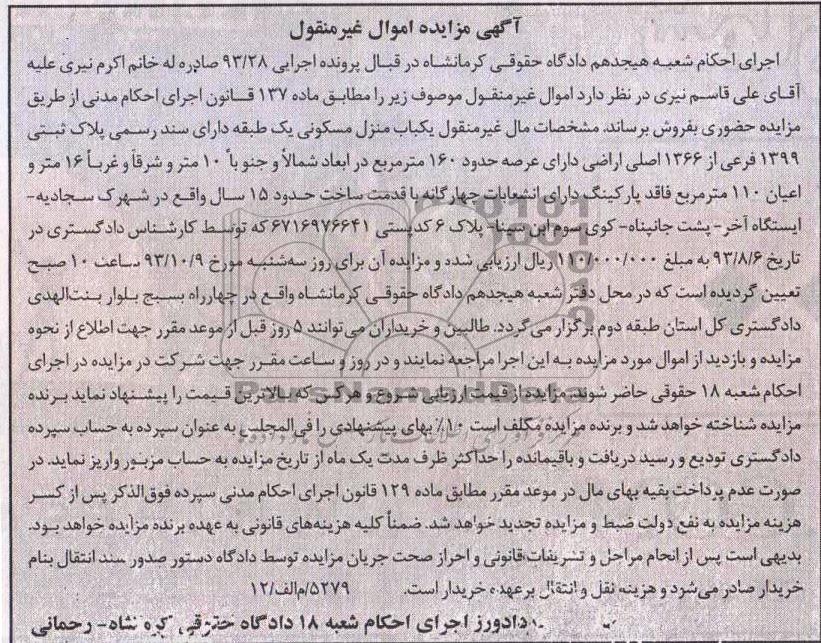 آگهی مزایده اموال غیرمنقول
اجرای احکام شعبه هیجدهم دادگاه حقوقی کرمانشاه در قبال پرونده اجرایی ۹۳/۲۸ صادره له خانم اکرم نیری علیه
آقای علی قاسم نیری در نظر دارد اموال غیرمنقول موصوف زیر را مطابق ماده ۱۳۷ قانون اجرای احکام مدنی از طریق
مزایده حضوری بفروش برساند. مشخصات مال غیرمنقول یکباب منزل مسکونی یک طبقه دارای سند رسمی پلاک ثبتی
۱۳۹۹ فرعی از ۱۳۶۶ اصلی اراضی دارای عرصه حدود ۱۶۰ مترمربع در ابعاد شمالاً و جنوباً ۱۰ متر و شرقاً و غرباً ۱۶ متر و
اعیان ۱۱۰ مترمربع فاقد پارکینگ دارای انشعابات چهارگانه با قدمت ساخت حدود ۱۵ سال واقع در شهرک سجادیه-
ایستگاه آخر- پشت جانپناه- کوی سوم ابن سینا- پلاک ۶ کدپستی ۶۷۱۶۹۷۶۶۴۱ که توسط کارشناس دادگستری در
تاریخ ۹۳/۸/۶ به مبلغ ۱۱۰/۰۰۰/۰۰۰ ریال ارزیابی شده و مزایده آن برای روز سه‌شنبه مورخ ۹۳/۱۰/۹ ساعت ۱۰ صبح
تعیین گردیده است که در محل دفتر شعبه هیجدهم دادگاه حقوقی کرمانشاه واقع در چهارراه بسیج بلوار بنت‌الهدی
دادگستری کل استان طبقه دوم برگزار می‌گردد. طالبین و خریداران می‌توانند ۵ روز قبل از موعد مقرر جهت اطلاع از نحوه
مزایده و بازدید از اموال مورد مزایده به این اجرا مراجعه نمایند و در روز و ساعت مقرر جهت شرکت در مزایده در اجرای
احکام شعبه ۱۸ حقوقی حاضر شوند. مزایده از قیمت ارزیابی شروع و هرکس که بالاترین قیمت را پیشنهاد نماید برنده
مزایده شناخته خواهد شد و برنده مزایده مکلف است ۱۰٪ بهای پیشنهادی را فی‌المجلس به عنوان سپرده به حساب سپرده
دادگستری تودیع و رسید دریافت و باقیمانده را حداکثر ظرف مدت یک ماه از تاریخ مزایده به حساب مزبور واریز نماید. در
صورت عدم پرداخت بقیه بهای مال در موعد مقرر مطابق ماده ۱۲۹ قانون اجرای احکام مدنی سپرده فوق‌الذکر پس از کسر
هزینه مزایده به نفع دولت ضبط و مزایده تجدید خواهد شد. ضمناً کلیه هزینه‌های قانونی به عهده برنده مزایده خواهد بود.
بدیهی است پس از انجام مراحل و تشریفات قانونی و احراز صحت جریان مزایده توسط دادگاه دستور صدور سند انتقال بنام
خریدار صادر می‌شود و هزینه نقل و انتقال برعهده خریدار است. ۵۲۷۹/م‌الف/۱۲
دادورز اجرای احکام شعبه ۱۸ دادگاه حقوقی کرمانشاه- رحمانی
ParsNamadData